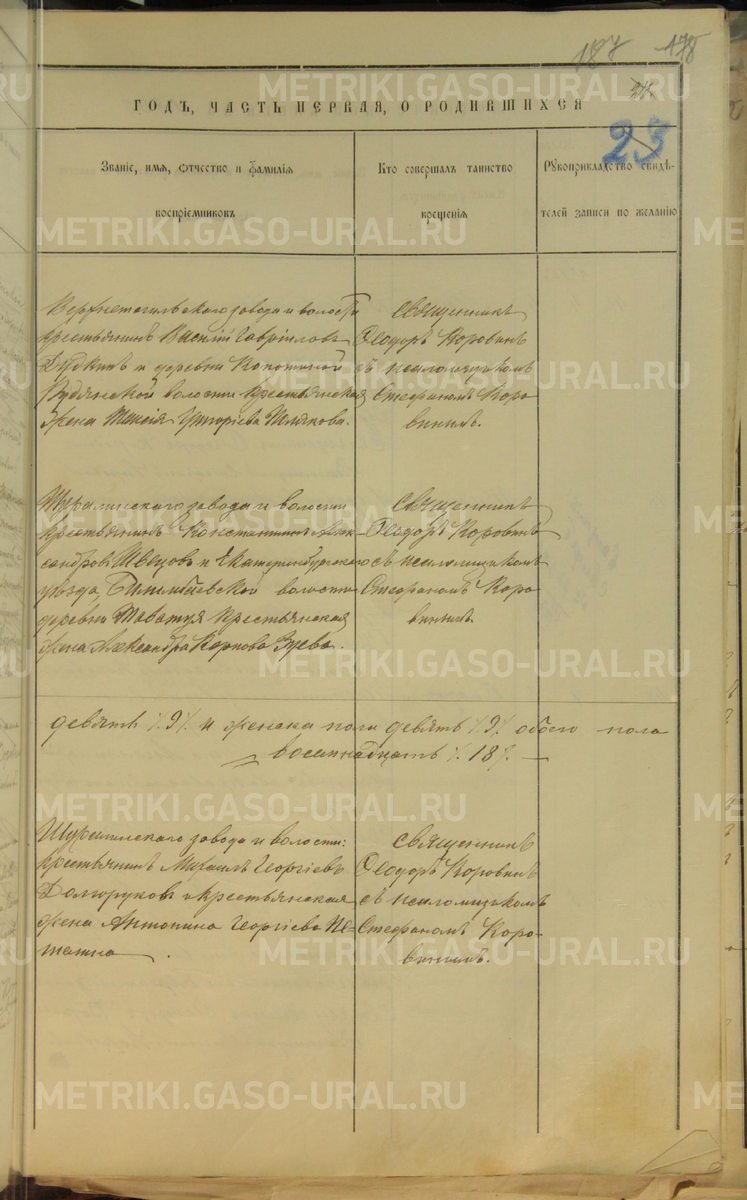 187 178
ГОДЪ, ЧАСТЬ ПЕРВАЯ, О РОДИВШИХСЯ
23
Званіе, имя, отчество и фамилія
воспріемниковъ
Кто совершалъ таинство
крещенія
Рукоприкладство свидѣ-
телей записи по желанію
Верхнетагильскаго завода и волости
крестьянинъ Василій Гавріиловъ
и деревни
волости крестьянская
жена Григоріева
Священникъ
Ѳеодоръ Коровинъ
съ псаломщикомъ
Стефаномъ Коро-
винымъ.
Шуралинскаго завода и волости
крестьянинъ Константинъ Алек-
сандровъ Швецовъ и Екатеринбургскаго
уѣзда Билимбаевской волости
деревни Таватуя крестьянская
жена Александра Карпова Зуева.
Священникъ
Ѳеодоръ Коровинъ
съ псаломщикомъ
Стефаномъ Коро-
винымъ.
девять /.9/. и женска пола девять /.9/. обоего пола
восемнадцать /.18/.
Шуралинскаго завода и волости:
крестьянинъ Михаилъ Георгіевъ
Долгоруковъ и крестьянская
жена Антонина Георгіева
Священникъ
Ѳеодоръ Коровинъ
съ псаломщикомъ
Стефаномъ Коро-
винымъ.
METRIKI.GASO-URAL.RU